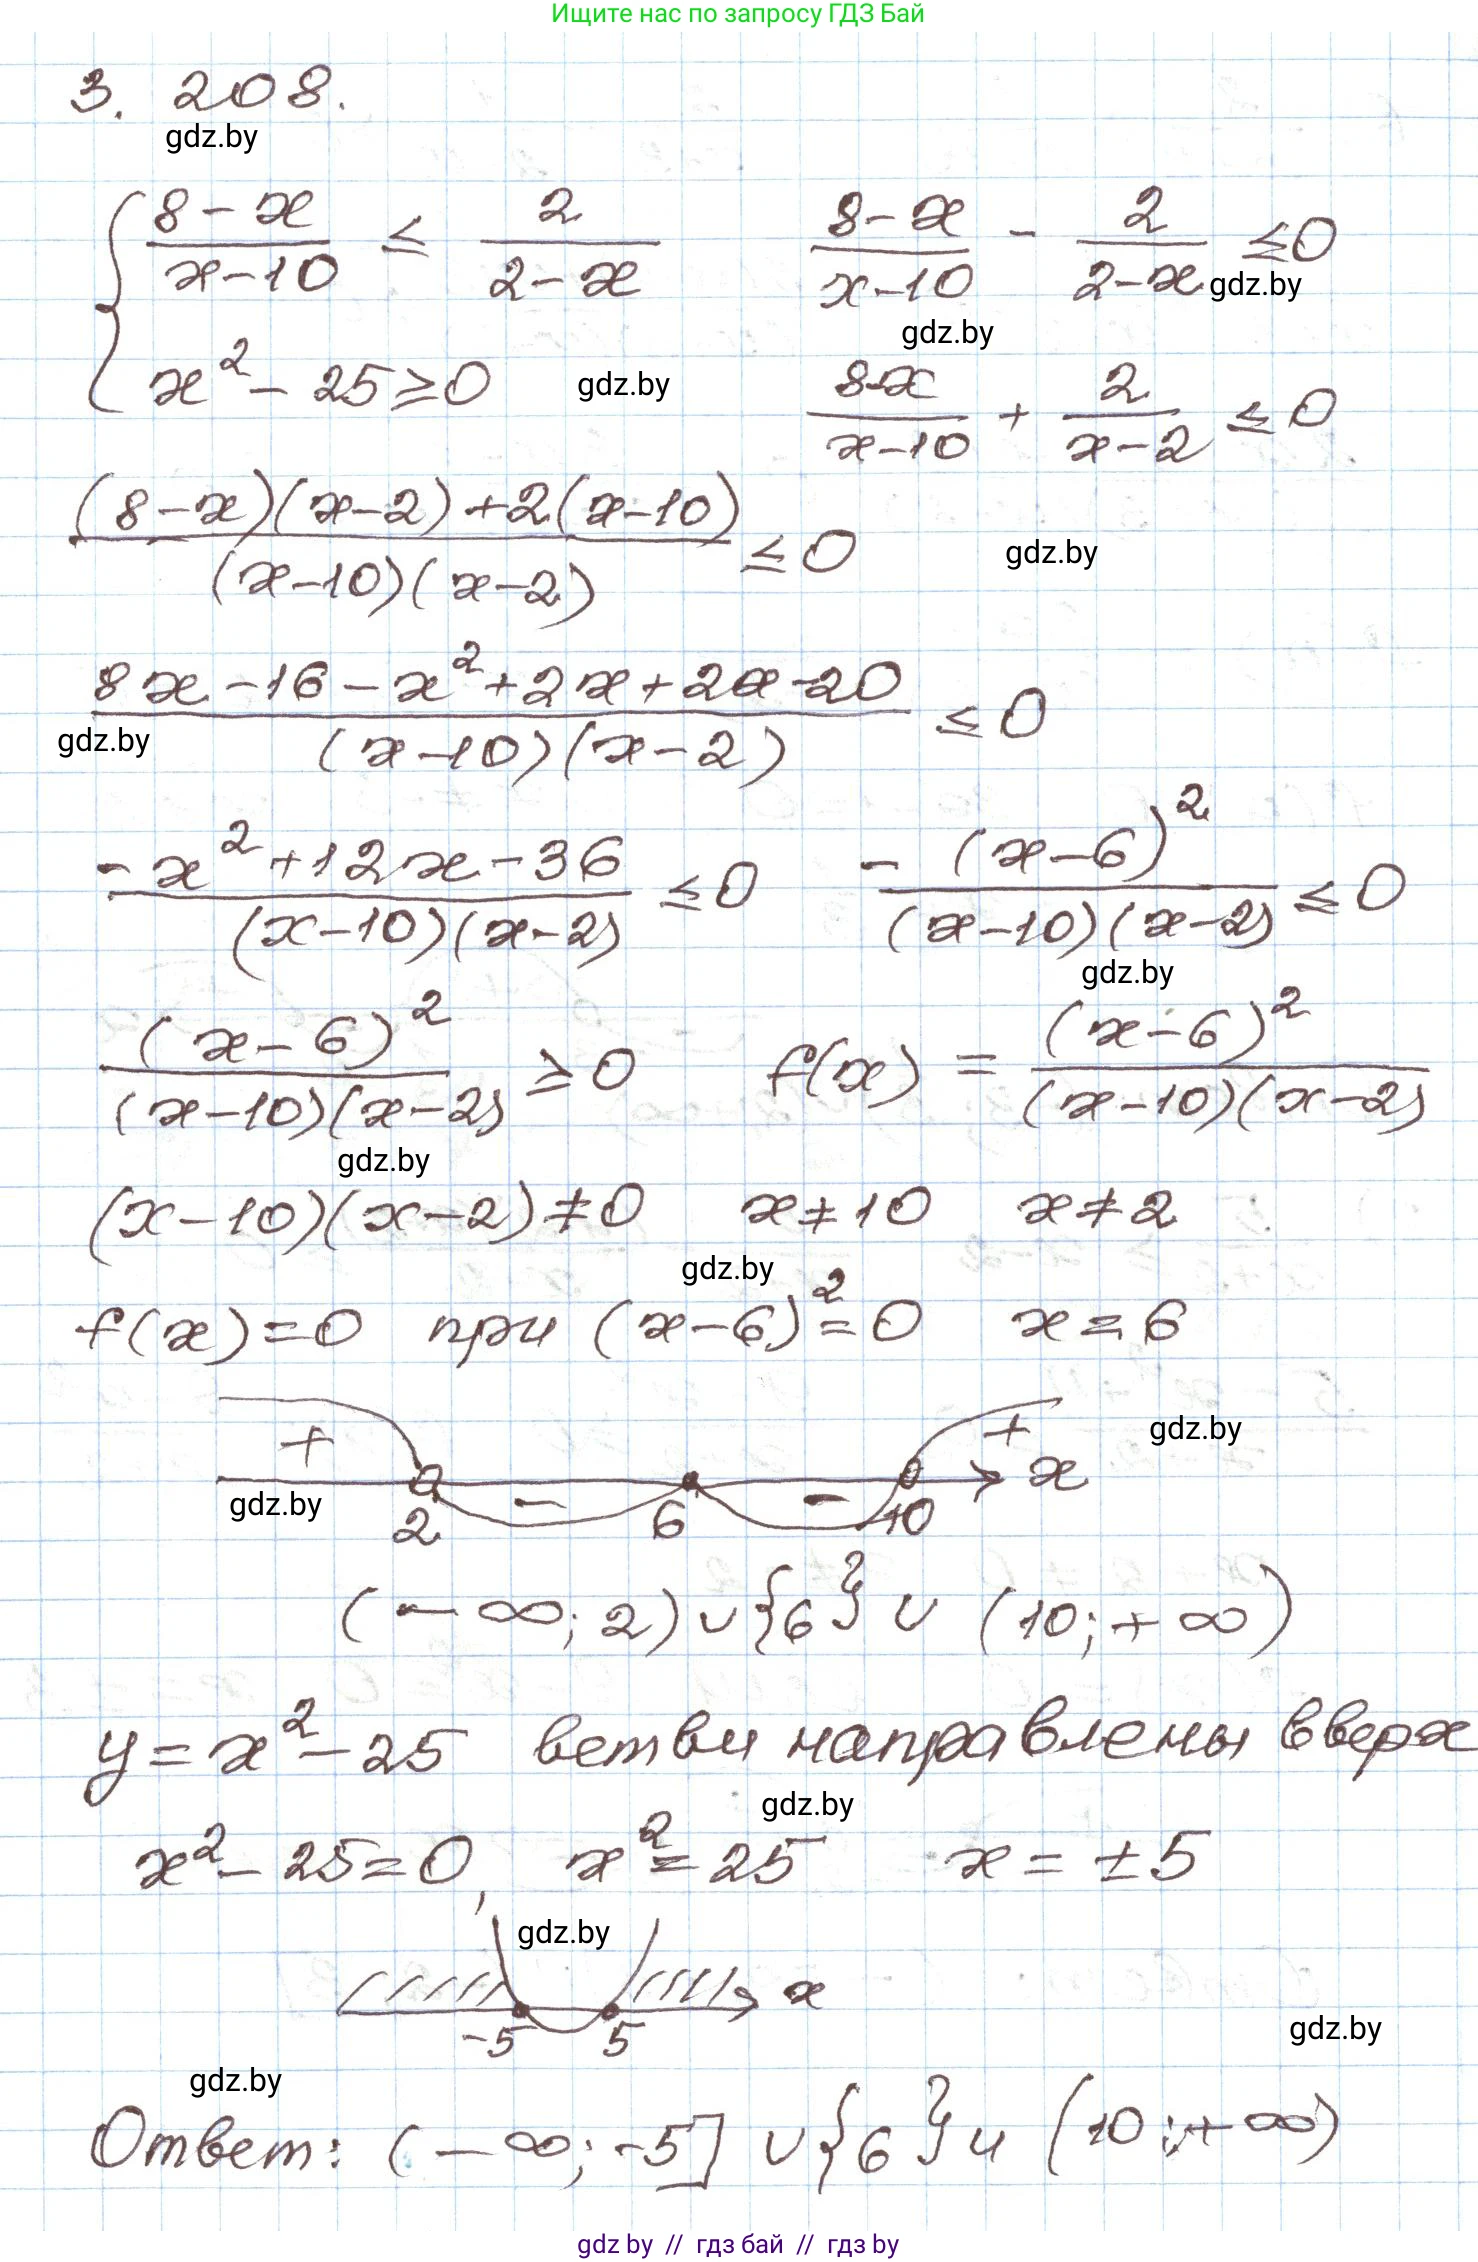 Ищите нас по запросу ГДЗ Бай
3. 208.
gdz.by
{ (8-x)/(x-10) ≤ 2/(2-x)    (8-x)/(x-10) - 2/(2-x) ≤ 0
gdz.by
gdz.by
x² - 25 ≥ 0    gdz.by    (8-x)/(x-10) + 2/(x-2) ≤ 0
((8-x)(x-2)+2(x-10))/((x-10)(x-2)) ≤ 0    gdz.by
(8x-16-x²+2x+2x-20)/((x-10)(x-2)) ≤ 0
gdz.by
(-x²+12x-36)/((x-10)(x-2)) ≤ 0    -(x-6)²/((x-10)(x-2)) ≤ 0
gdz.by
(x-6)²/((x-10)(x-2)) ≥ 0    f(x) = (x-6)²/((x-10)(x-2))
gdz.by
(x-10)(x-2)≠0    x≠10    x≠2
gdz.by
f(x)=0 при (x-6)²=0    x=6
+ - - + x
gdz.by
gdz.by
2 6 10
(-∞; 2)∪{6}∪(10;+∞)
y=x²-25 ветви направлены вверх
gdz.by
x²-25=0, x²=25    x=±5
gdz.by
x
-5 5
gdz.by
gdz.by
Ответ: (-∞;-5]∪{6}∪(10;+∞)
gdz by // гдз бай // гдз by